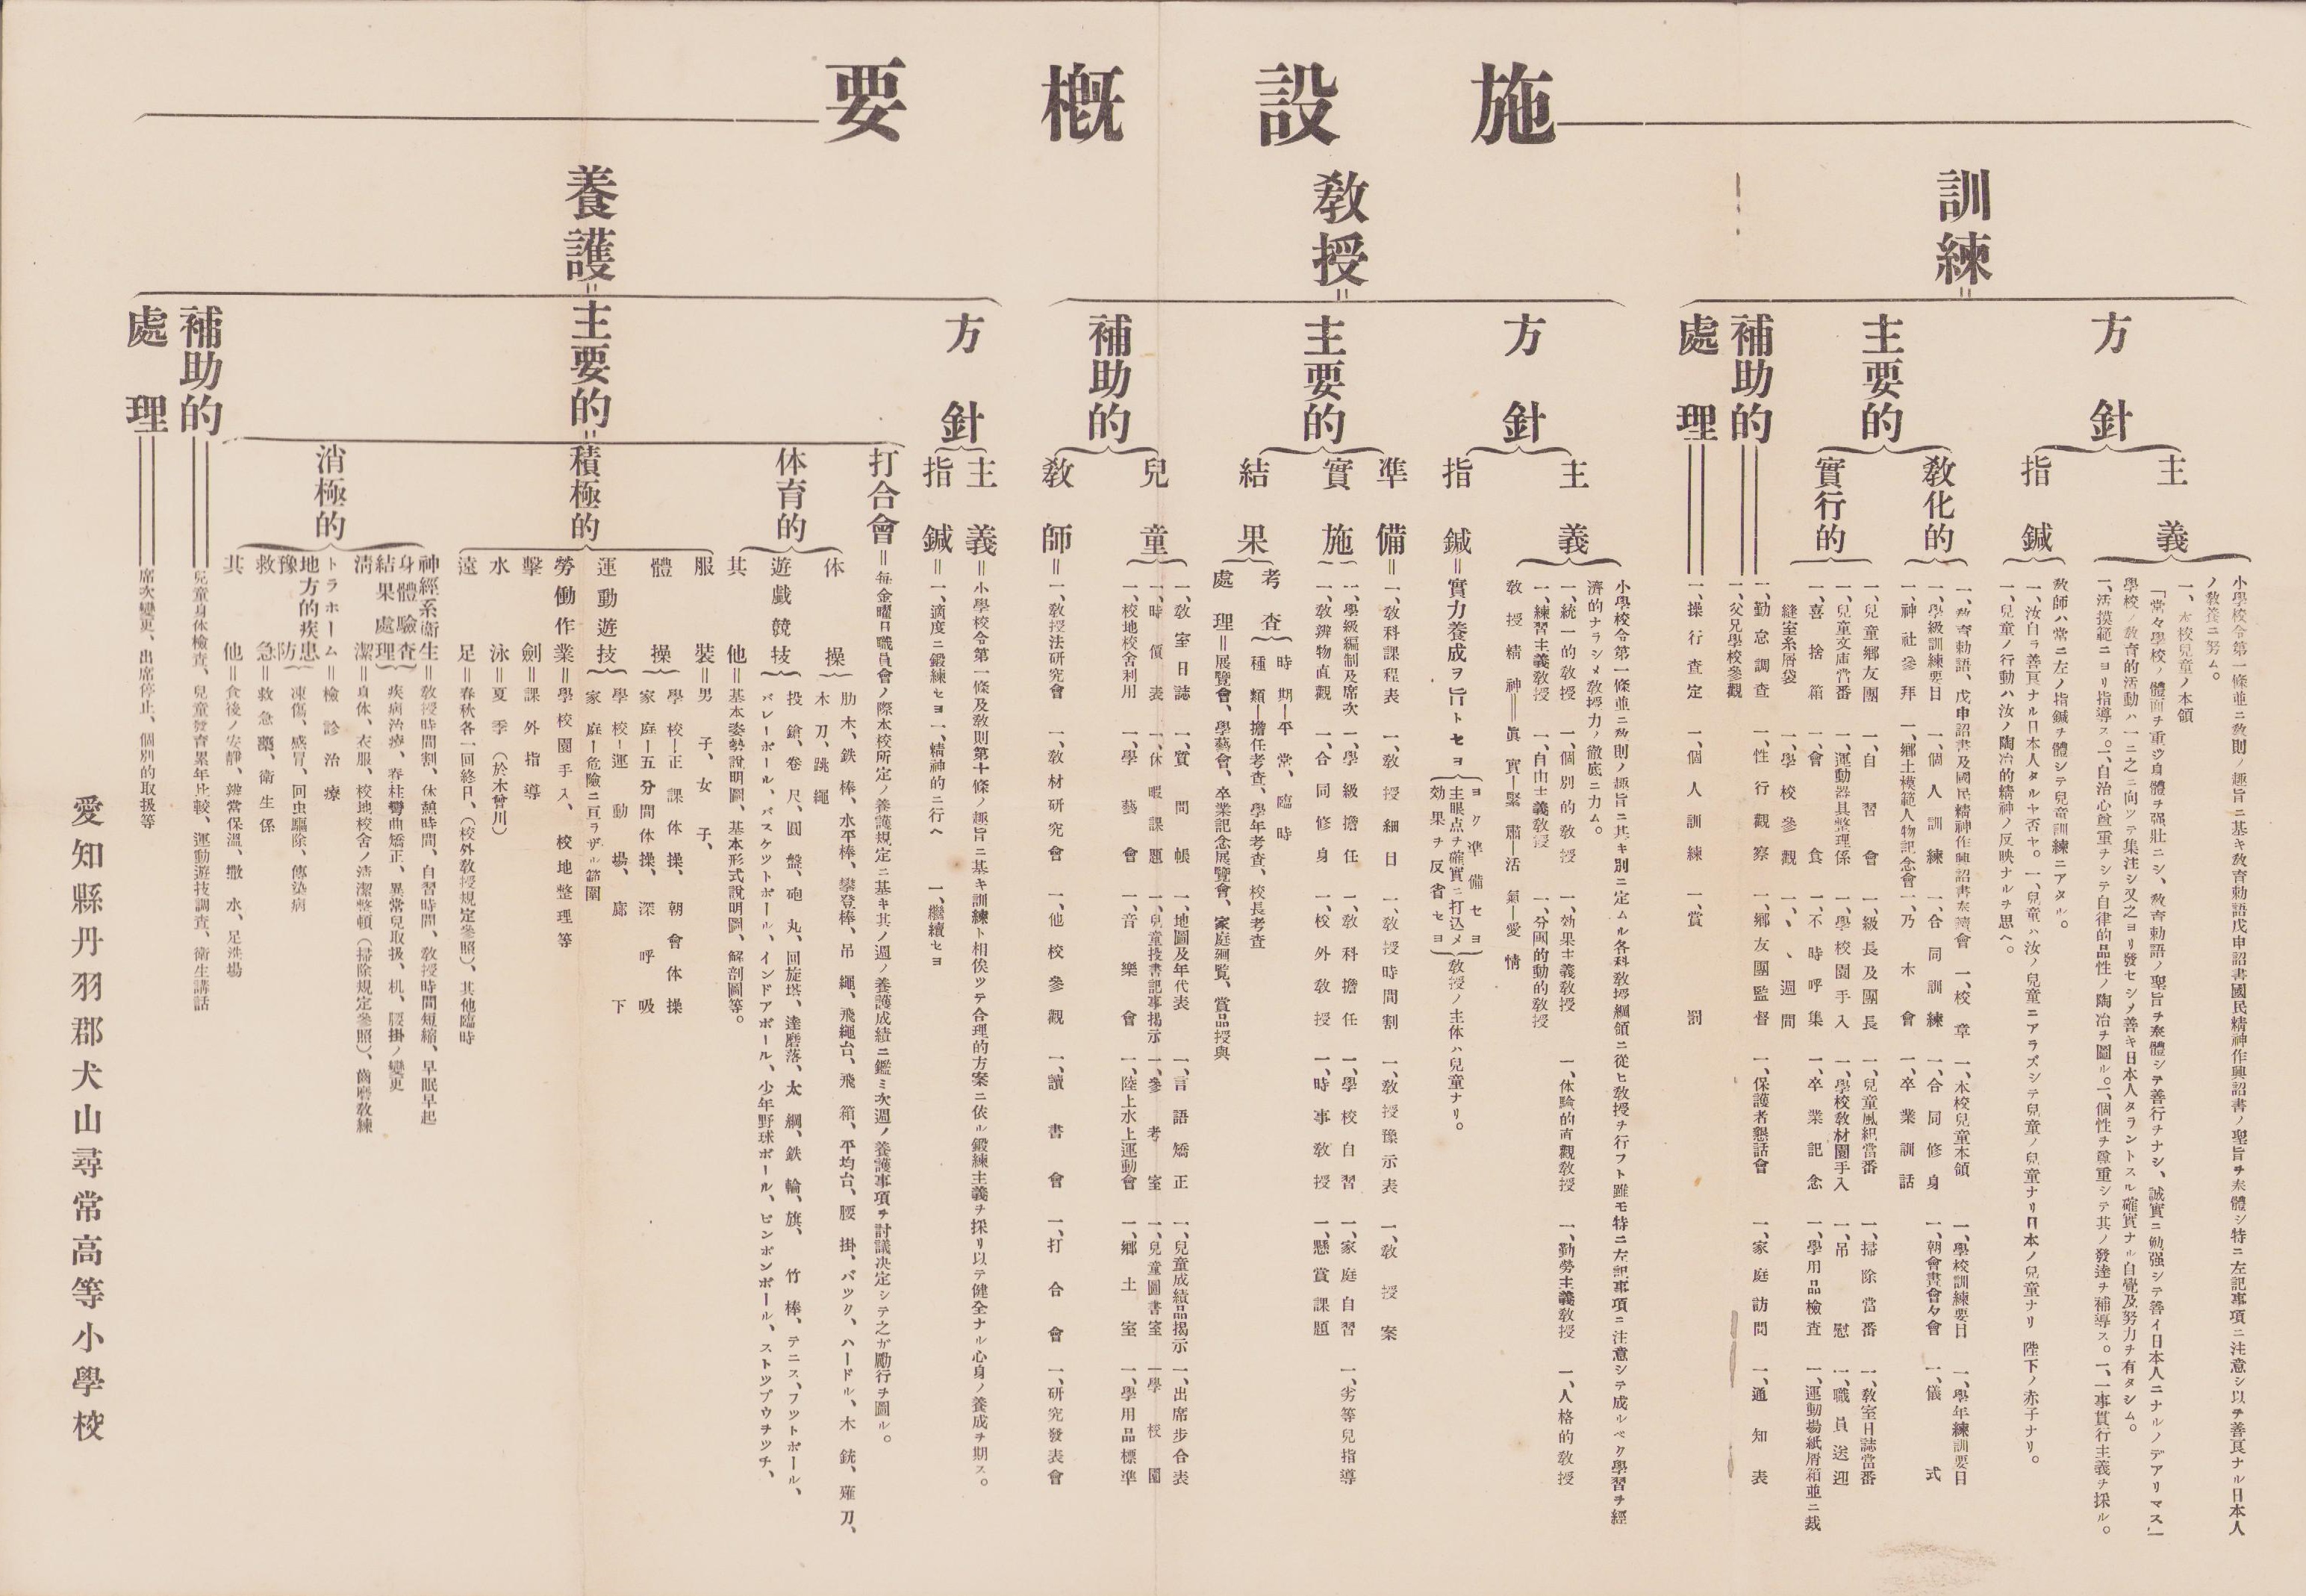 施設概要
訓練
方針
主義
小學校令第一條並ニ敎則ノ趣旨ニ基キ敎育勅語戊申詔書國民精神作興詔書ノ聖旨ヲ奉體シ特ニ左記事項ニ注意シ以テ善良ナル日本人
ノ敎養ニ努ム。
一、本校兒童ノ本領
「常々學校ノ體面ヲ重ンジ身體ヲ强壯ニシ、敎育勅語ノ聖旨ヲ奉體シテ善行ヲナシ、誠實ニ勉强シテ善イ日本人ニナルノデアリマス」
學校ノ敎育的活動ハ一ニ之ニ向ツテ集注シ又之ヨリ發セシメ善キ日本人タラントスル確實ナル自覺及努力ヲ有タシム。
一、活摸範ニヨリ指導ス。一、自治心尊重ヲシテ自律的品性ノ陶冶ヲ圖ル。一、個性ヲ尊重シテ其ノ發達ヲ補導ス。一、一事貫行主義ヲ採ル。
指鍼
敎師ハ常ニ左ノ指鍼ヲ體シテ兒童訓練ニアタル。
一、汝自ラ善良ナル日本人タルヤ否ヤ。一、兒童ハ汝ノ兒童ニアラズシテ兒童ノ兒童ナリ日本ノ兒童ナリ 陛下ノ赤子ナリ。
一、兒童ノ行動ハ汝ノ陶冶的精神ノ反映ナルヲ思ヘ。
主要的
敎化的
一、敎育勅語、戊申詔書及國民精神作興詔書奉讀會 一、校章 一、本校兒童本領 一、學校訓練要目 一、學年練訓要目
一、學級訓練要目 一、個人訓練 一、合同訓練 一、合同修身 一、朝會晝會夕會 一、儀式
一、神社參拜 一、鄕土模範人物記念會 一、乃木會 一、卒業訓話
實行的
一、兒童鄕友團 一、自習會 一、級長及團長 一、兒童風紀當番 一、掃除當番 一、敎室日誌當番
一、兒童文庫當番 一、運動器具整理係 一、學校園手入 一、學校敎材園手入 一、吊慰 一、職員送迎
一、喜捨箱 一、會食 一、不時呼集 一、卒業記念 一、學用品檢査 一、運動場紙屑箱並ニ裁
縫室糸屑袋 一、學校參觀 一、、、週間
補助的
一、勤怠調査 一、性行觀察 一、鄕友團監督 一、保護者懇話會 一、家庭訪問 一、通知表
一、父兄學校參觀
處理
一、操行査定 一、個人訓練 一、賞罰
敎授
方針
主義
小學校令第一條並ニ敎則ノ趣旨ニ基キ別ニ定ムル各科敎授綱領ニ從ヒ敎授ヲ行フト雖モ特ニ左記事項ニ注意シテ成ルベク學習ヲ經
濟的ナラシメ敎授力ノ徹底ニ力ム。
一、統一的敎授 一、個別的敎授 一、効果主義敎授 一、体驗的直觀敎授 一、勤勞主義敎授 一、人格的敎授
一、練習主義敎授 一、自由主義敎授 一、分團的動的敎授
敎授精神＝眞實―緊肅―活氣―愛情
指鍼＝實力養成ヲ旨トセヨ
ヨク準備セヨ
主眼点ヲ確實ニ打込メ
効果ヲ反省セヨ
敎授ノ主体ハ兒童ナリ。
主要的
準備＝一、敎科課程表 一、敎授細目 一、敎授時間割 一、敎授豫示表 一、敎授案
實施
一、學級編制及席次 一、學級擔任 一、敎科擔任 一、學校自習 一、家庭自習 一、劣等兒指導
一、敎辨物直觀 一、合同修身 一、校外敎授 一、時事敎授 一、懸賞課題
結果
考査
時期―平常、臨時
種類―擔任考査、學年考査、校長考査
處理＝展覽會、學藝會、卒業記念展覽會、家庭廻覧、賞品授與
補助的
兒童
一、敎室日誌 一、質問帳 一、地圖及年代表 一、言語矯正 一、兒童成績品揭示 一、出席步合表
一、時價表 一、休暇課題 一、兒童投書記事揭示 一、參考室 一、兒童圖書室 一學校園
一、校地校舍利用 一、學藝會 一、音樂會 一、陸上水上運動會 一、鄕土室 一、學用品標準
敎師＝一、敎授法研究會 一、敎材研究會 一、他校參觀 一、讀書會 一、打合會 一、研究發表會
養護
方針
主義＝小學校令第一條及敎則第十條ノ趣旨ニ基キ訓練ト相俟ツテ合理的方案ニ依ル鍛練主義ヲ採リ以テ健全ナル心身ノ養成ヲ期ス。
指鍼＝一、適度ニ鍛練セヨ 一、精神的ニ行ヘ 一、繼續セヨ
主要的
打合會＝每金曜日職員會ノ際本校所定ノ養護規定ニ基キ其ノ週ノ養護成績ニ鑑ミ次週ノ養護事項ヲ討議決定シテ之ガ勵行ヲ圖ル。
体育的
体操
肋木、鉄棒、水平棒、攀登棒、吊繩、飛繩台、飛箱、平均台、腰掛、バツク、ハードル、木銃、薙刀、
木刀、跳繩
遊戲競技
投鎗、卷尺、圓盤、砲丸、回旋塔、達磨落、太綱、鉄輪、旗、竹棒、テニス、フツトボール、
バレーボール、バスケツトボール、インドアボール、少年野球ボール、ピンポンボール、ストツプウオツチ、
其他＝基本姿勢說明圖、基本形式說明圖、解剖圖等。
積極的
服裝＝男子、女子、
體操
學校―正課体操、朝會体操
家庭―五分間体操、深呼吸
運動遊技
學校―運動場、廊下
家庭―危險ニ亘ラザル範圍
勞働作業＝學校園手入、校地整理等
擊劍＝課外指導
水泳＝夏季（於木曾川）
遠足＝春秋各一回終日、（校外敎授規定參照）、其他臨時
消極的
神經系衞生＝敎授時間割、休憩時間、自習時間、敎授時間短縮、早眠早起
身體驗査結果處理＝疾病治療、脊柱彎曲矯正、異常兒取扱、机、腰掛ノ變更
淸潔＝身体、衣服、校地校舍ノ淸潔整頓（掃除規定參照）、齒磨敎練
トラホーム＝檢診治療
地方的疾患豫防＝凍傷、感冒、回虫驅除、傳染病
救急＝救急藥、衞生係
其他＝食後ノ安靜、辨當保溫、撒水、足洗場
補助的
兒童身休檢査、兒童發育累年比較、運動遊技調査、衞生講話
處理
席次變更、出席停止、個別的取扱等
愛知縣丹羽郡犬山尋常高等小學校